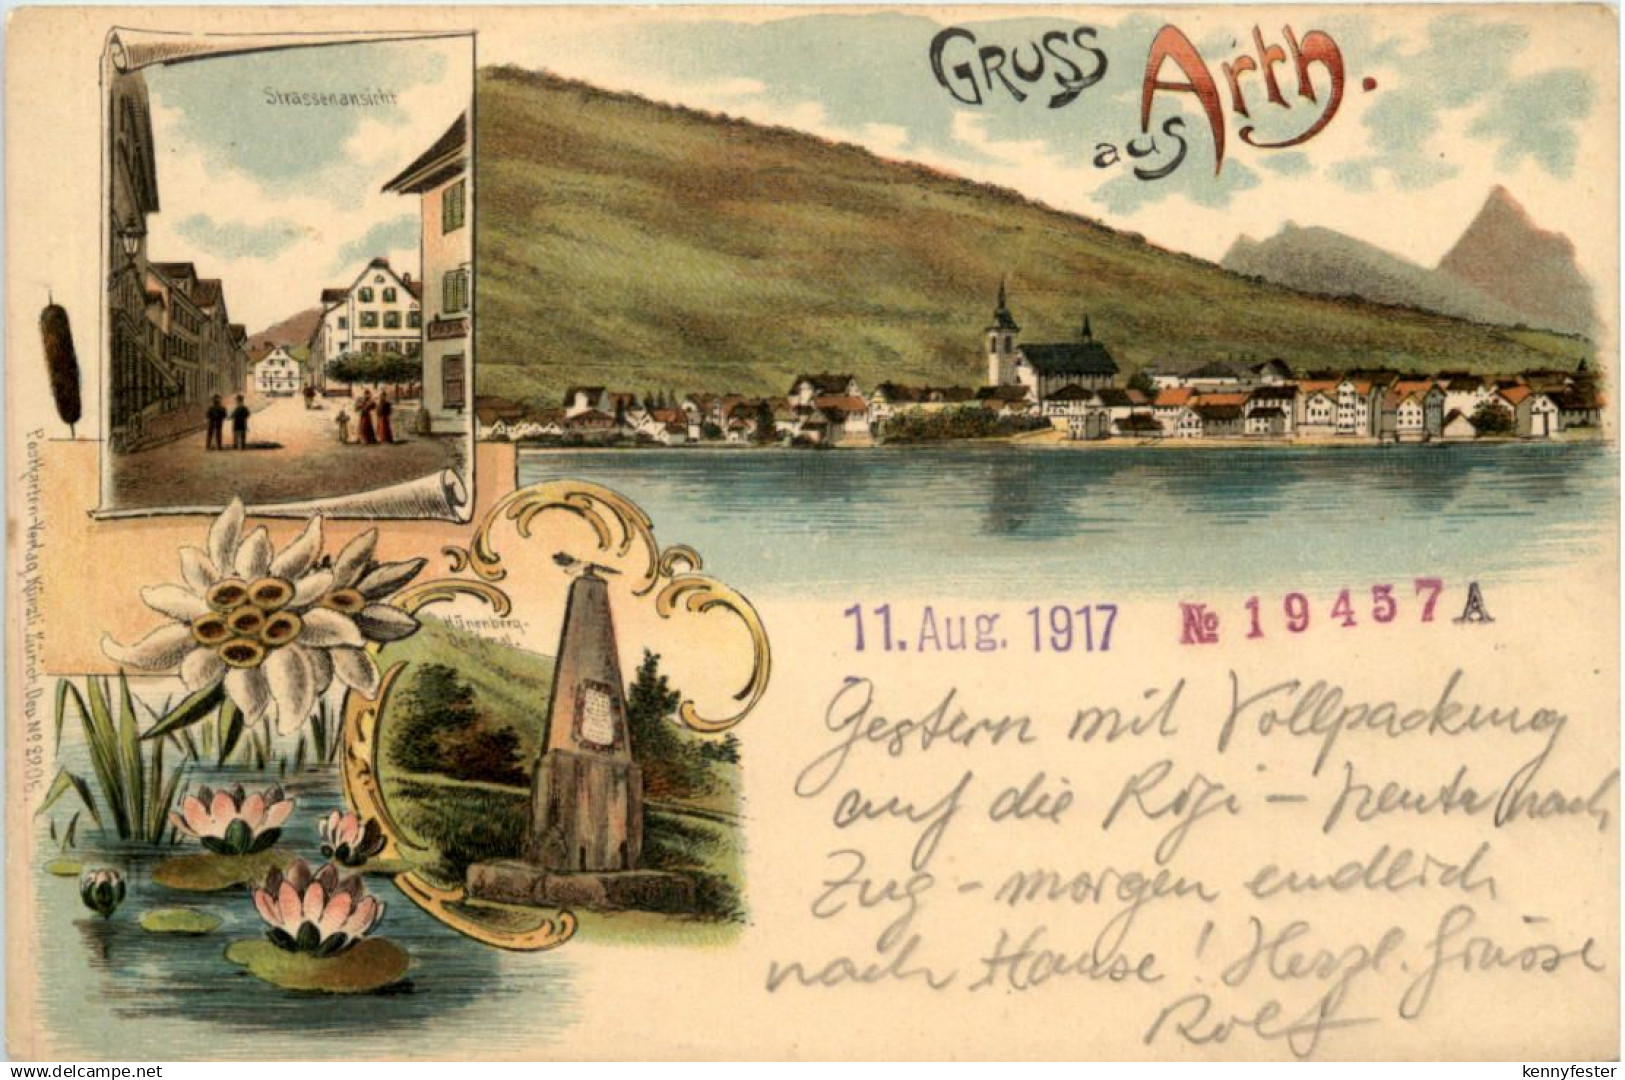 Gruss
aus Arth.
Strassenansicht
Hünenberg-
Denkmal.
Postkarten-Verlag Künzli, Zürich, Dep. No 2905.
11. Aug. 1917 No 19457 A
Gestern mit Vollpackung
auf die Rigi – heute nach
Zug – morgen endlich
nach Hause! Herzl. Grüsse
Rolf
delcampe.net
kennyfester